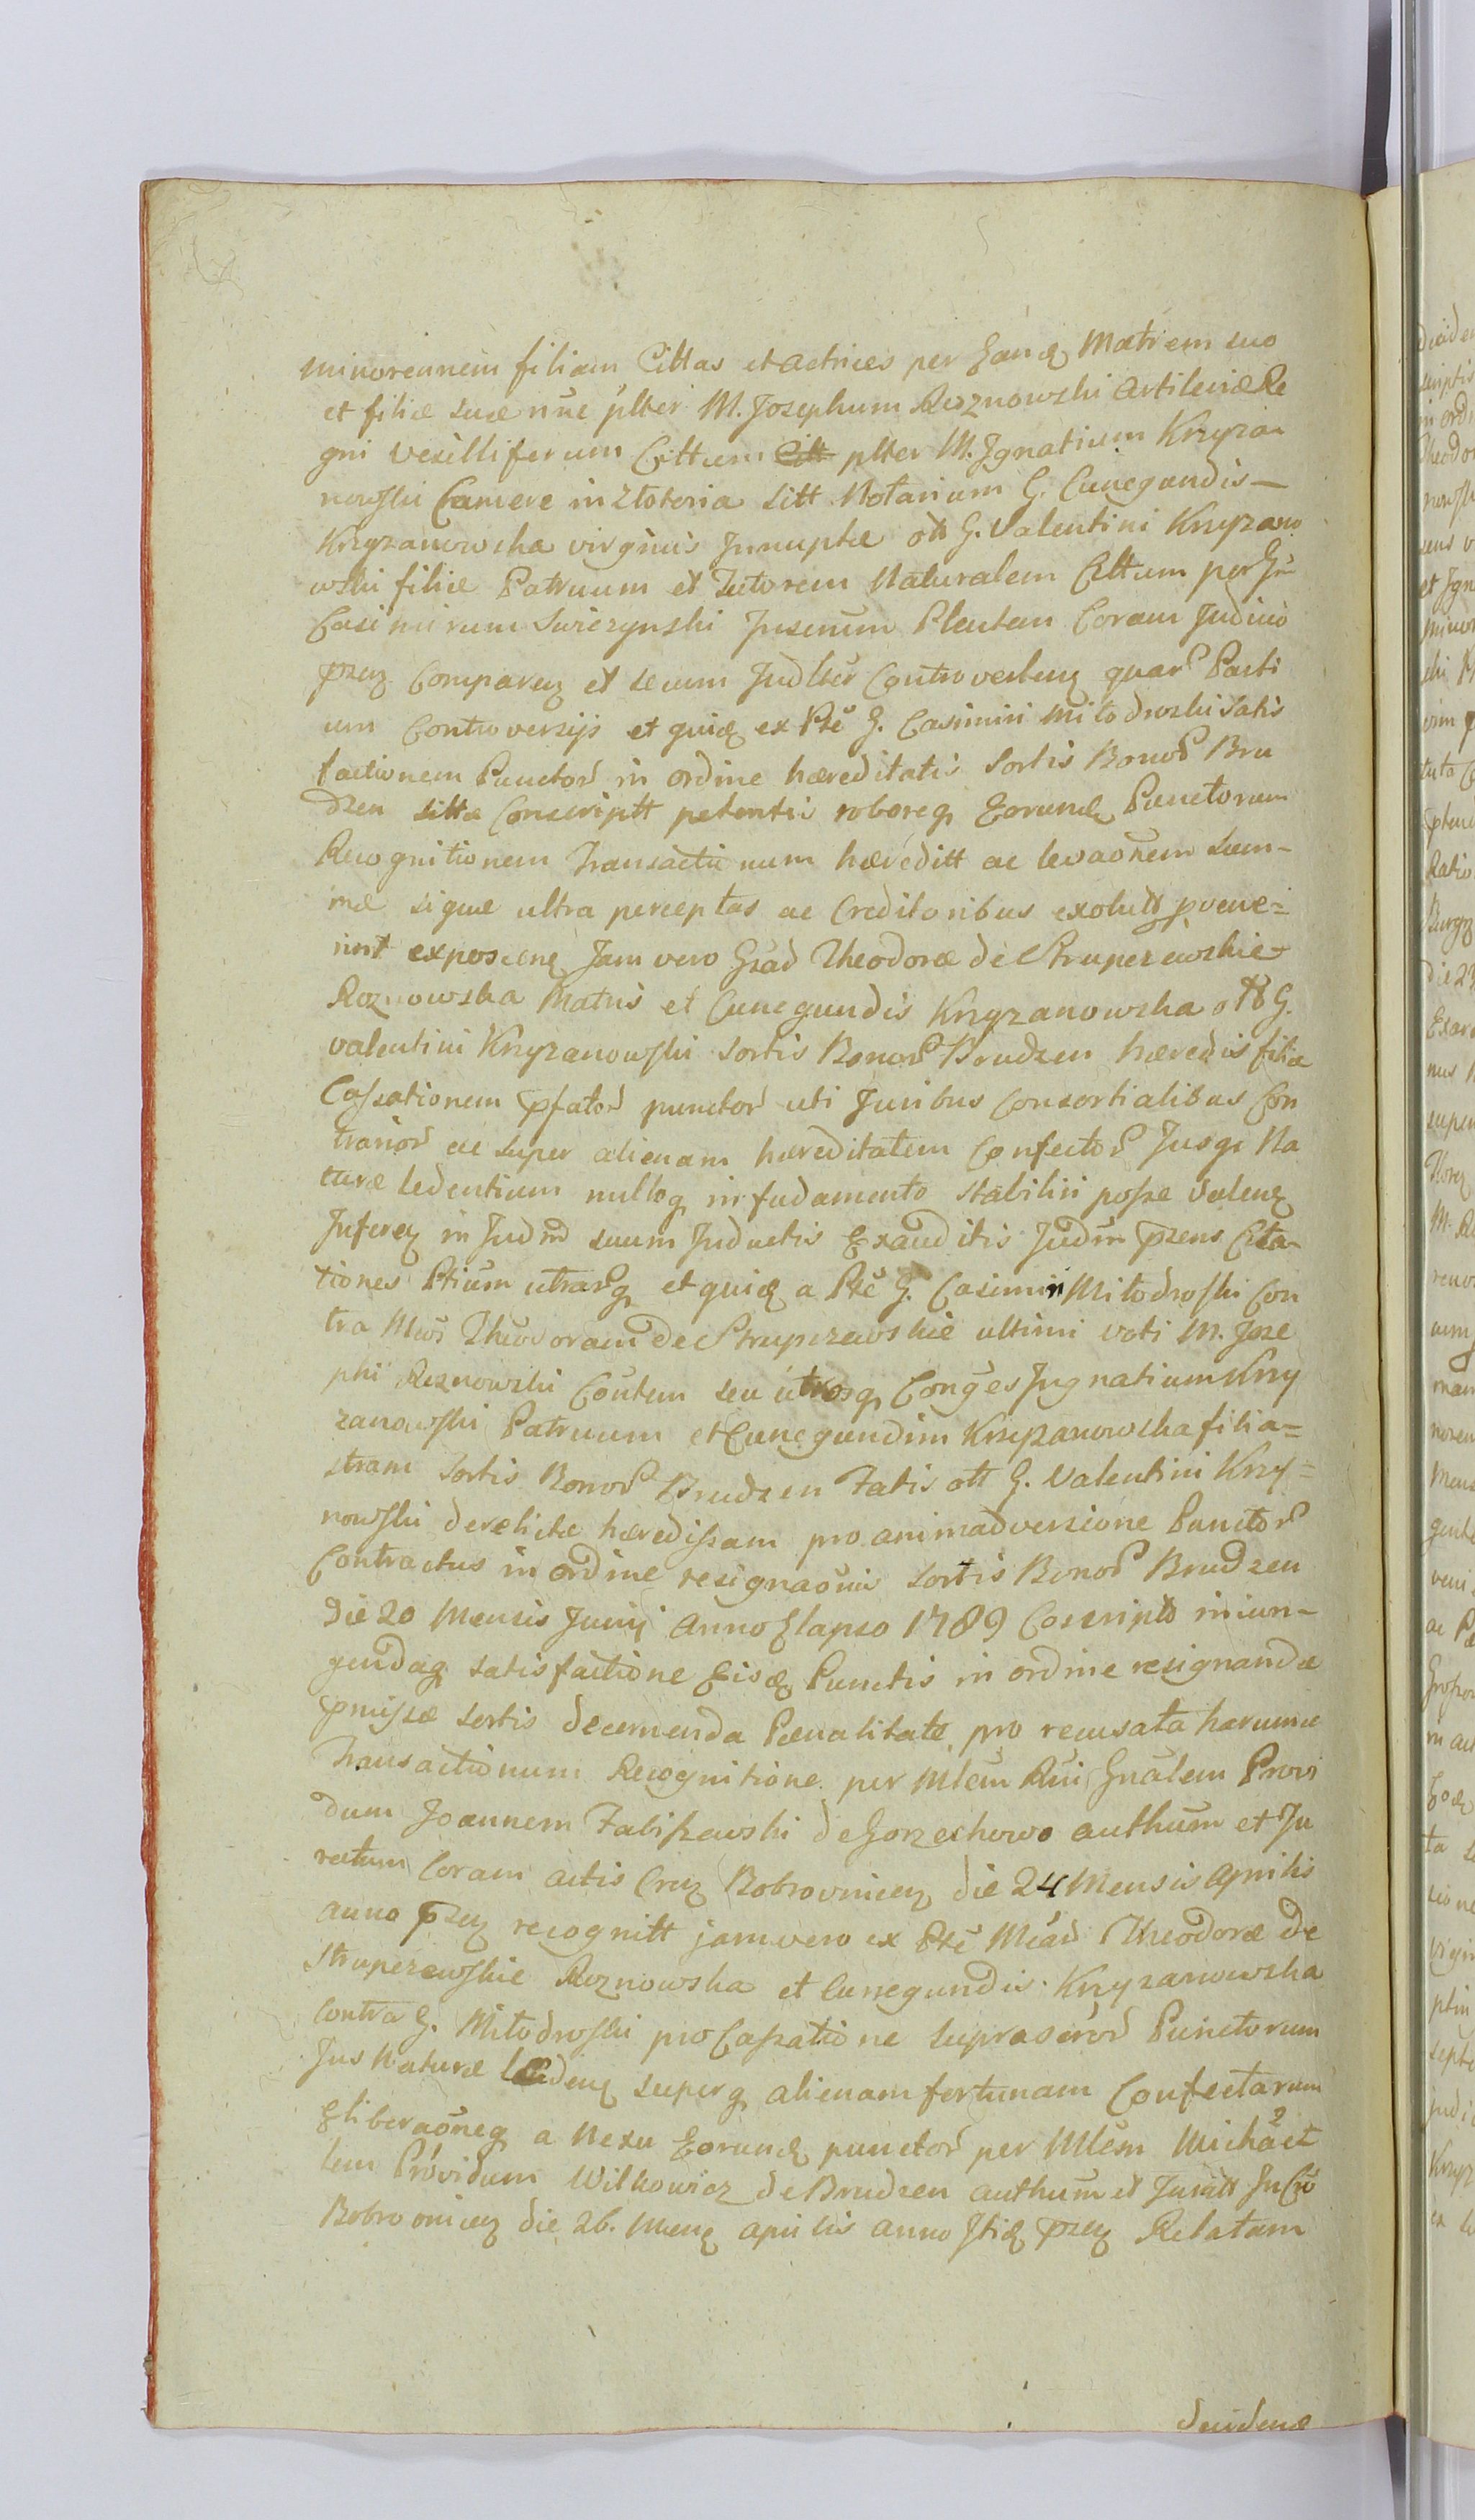 minorennem filiam Cittas et actrices per Eand Matrem suo
et filiæ suæ nũc plter M. Josephum Roznowski Artileriæ Re
gni vexilliferum Cittum plter M. Ignatium Krzyza
nowski Camere in Złotoria Sitt Notarium G. Cunegundis
Krzyzanowska virginis Innuptæ ott G. Valentini Krzyzano
wski filiæ Patruum et Tutorem Naturalem Cittum per Gm
Casimirum Swiezynski Plenten Coram Judicio
przn Comparen et secum Judlter Controverten quar Parti
um Controversijs et quid ex Pte G. Casimiri Mitodroski Satis
factionem Punctor in ordine hæreditatis Sortis Bonor Bru
dzen sittæ Conscriptt petentis roboreq Eorund Punctorum
Recognitionem Transactionum hæreditt ac levaõnem Sum-
mæ siquæ ultra perceptas ac Creditoribus exolutt pvene=
rint exposcen Jam vero Theodoræ de Strupczewskie
Roznowska Matris et Cunegundis Krzyzanowska ott G.
Valentini Krzyzanowski Sortis Bonor Brudzen hæredis filiæ
Cassationem pfator punctor uti Juribus Consortialibus Con
trarior ac super alienam hæreditatem Confector Jusq Na
turæ ledentium nulloq in fudamento stabiliri posse valen
Inferen in Judm suum Inductis Exauditis Judm przens Cita
tiones Ptium utrarq et quid a Pte G. Casimiri Mitodroski Con
tra Theodoram de Strupczewskie ultimi voti M. Jose
phi Roznowski Coutem seu utrosq Conges Ignatium Krzy
zanowski Patruum et Cunegundim Krzyzanowska filia=
stram Sortis Bonor Brudzen Fatis ott G. Valentini Krzy=
nowski derelictæ hæredissam pro animadversione Punctor
Contractus in ordine resignaõnis Sortis Bonor Brudzen
die 20 Mensis Junij Anno Elapso 1789 Coscripto iniun-
gendaq satisfactione Eisd Punctis in ordine resignandæ
pmissæ sortis decernenda Pænalitate pro recusata harumce
Transactionum Recognitione per Mlem Rni Gnalem Provi
dum Joannem Fabiszewski de Gorzechowo authum et Ju
ratum Coram actis Cren Bobrovnicen die 24 Mensis Aprilis
anno przn recognitt jam vero ex Pte Theodoræ de
Strupczewskie Roznowska et Cunegundis Krzyzanowska
Contra G. Mitodroski pro Cassatione suprascror Punctorum
Jus Naturæ læden superq alienam fortunam Confectarum
Eliberaõneq a Nexu Eorund punctor per Mlem Michae
lem Providum Wilkowicz de Brudzen authum et Juratt
Bobrovnicen die 26. Mens aprilis anno przn Relatam